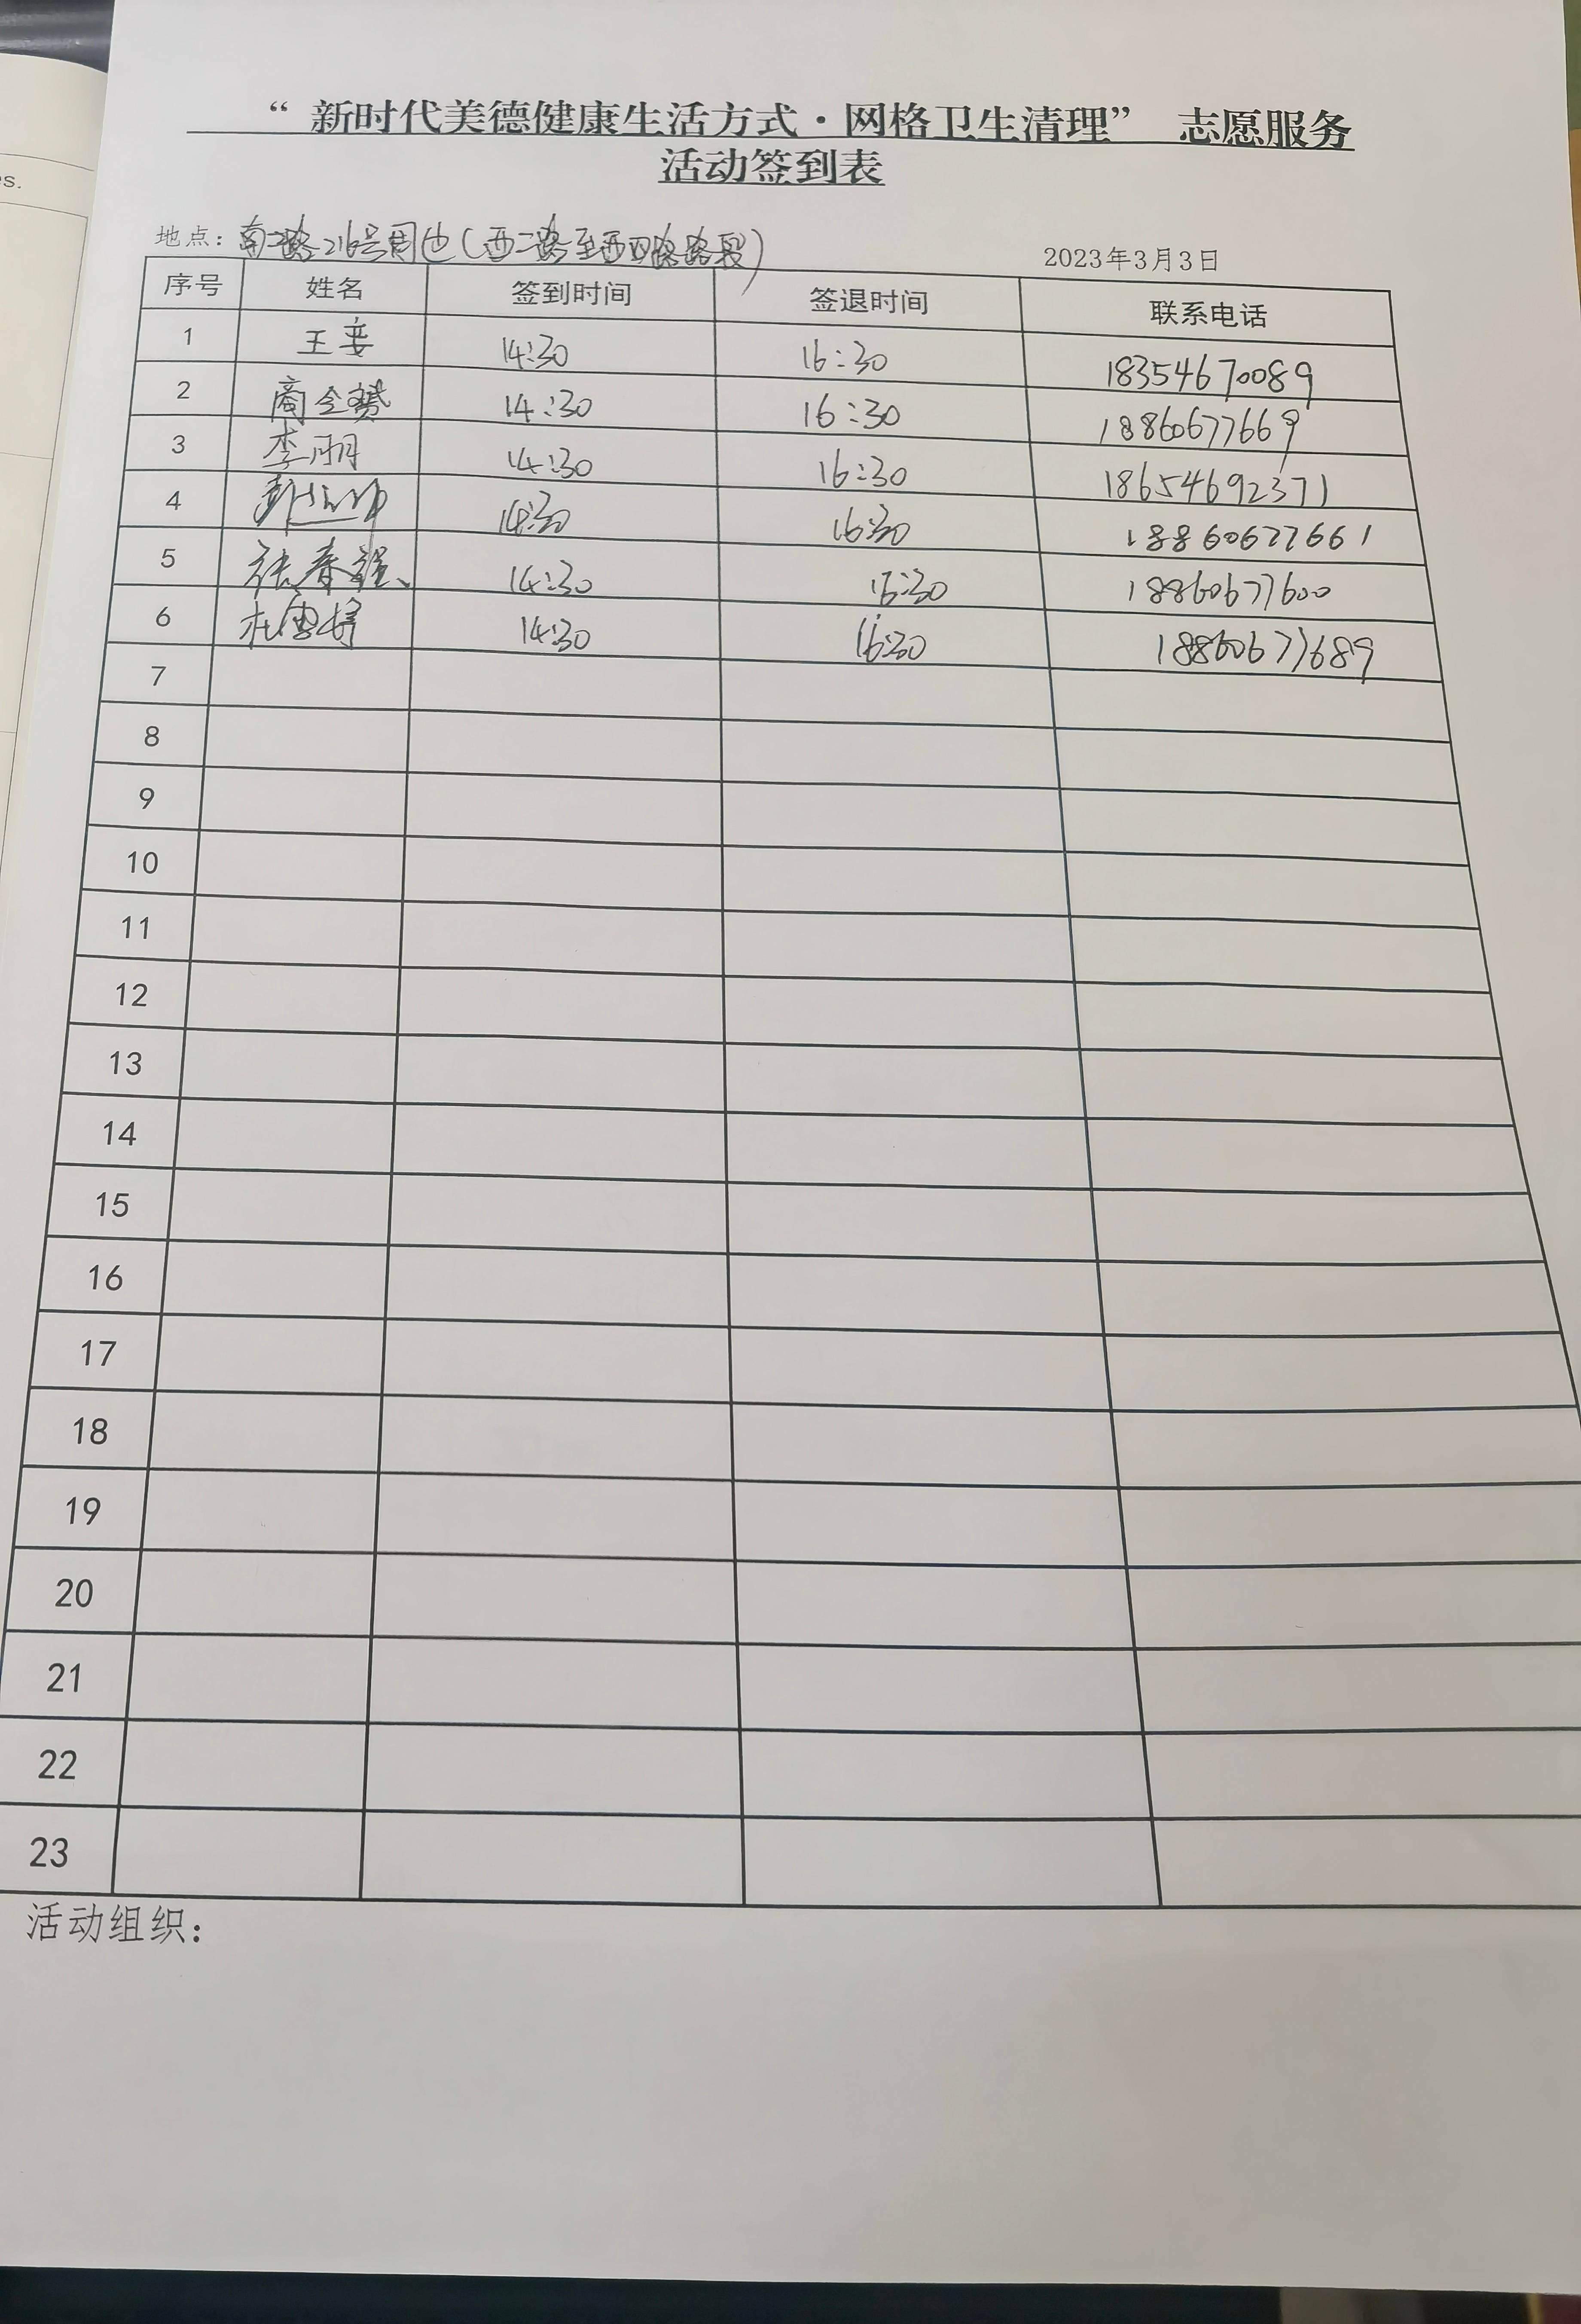 es.
“新时代美德健康生活方式·网格卫生清理” 志愿服务
活动签到表
地点：南二路216号周边(西二路至西四路路段)
2023年3月3日
序号 姓名 签到时间 签退时间 联系电话
1 王 14:30 16:30 18354670089
2 商全 14:30 16:30 18860677669
3 李明 14:30 16:30 18654692371
4 14:30 16:30 18860677661
5 张春 14:30 16:30 18860677600
6 杜雪婷 14:30 16:30 18860677689
7
8
9
10
11
12
13
14
15
16
17
18
19
20
21
22
23
活动组织：